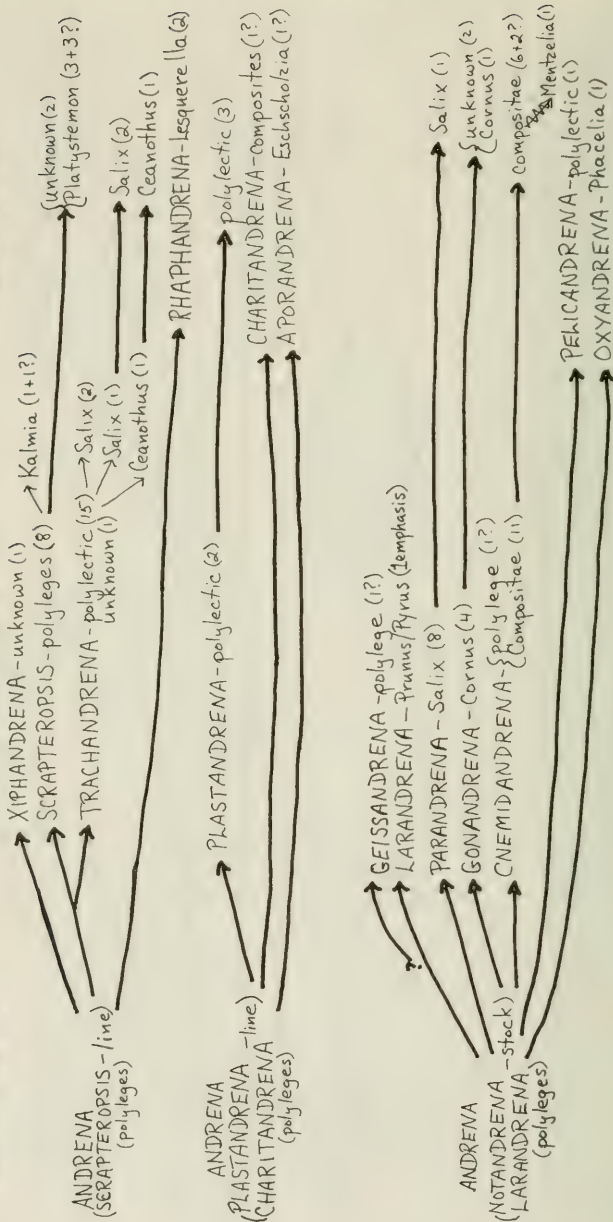 ANDRENA
(SCRAPTEROPSIS-line)
(polyleges)
XIPHANDRENA-unknown (1)
SCRAPTEROPSIS-polyleges (8)
Kalmia (1+1?)
{unknown (2)
{Platystemon (3+3?)
TRACHANDRENA-polylectic (15)
unknown (1)
Salix (2)
Salix (1)
Salix (2)
Ceanothus (1)
Ceanothus (1)
RHAPHANDRENA-Lesquerella (2)
ANDRENA
(PLASTANDRENA -line)
(CHARITANDRENA
(polyleges)
PLASTANDRENA-polylectic (2)
polylectic (3)
CHARITANDRENA-composites (1?)
APORANDRENA-Eschscholzia (1?)
ANDRENA
(NOTANDRENA -stock)
(LARANDRENA
(polyleges)
?
GEISSANDRENA-polylege (1?)
LARANDRENA-Prunus/Pyrus (1emphasis)
PARANDRENA-Salix (8)
Salix (1)
GONANDRENA-Cornus (4)
{unknown (2)
{Cornus (1)
CNEMIDANDRENA-{polylege (1?)
{Compositae (11)
Compositae (6+2?)
Mentzelia (1)
PELICANDRENA-polylectic (1)
OXYANDRENA-Phacelia (1)